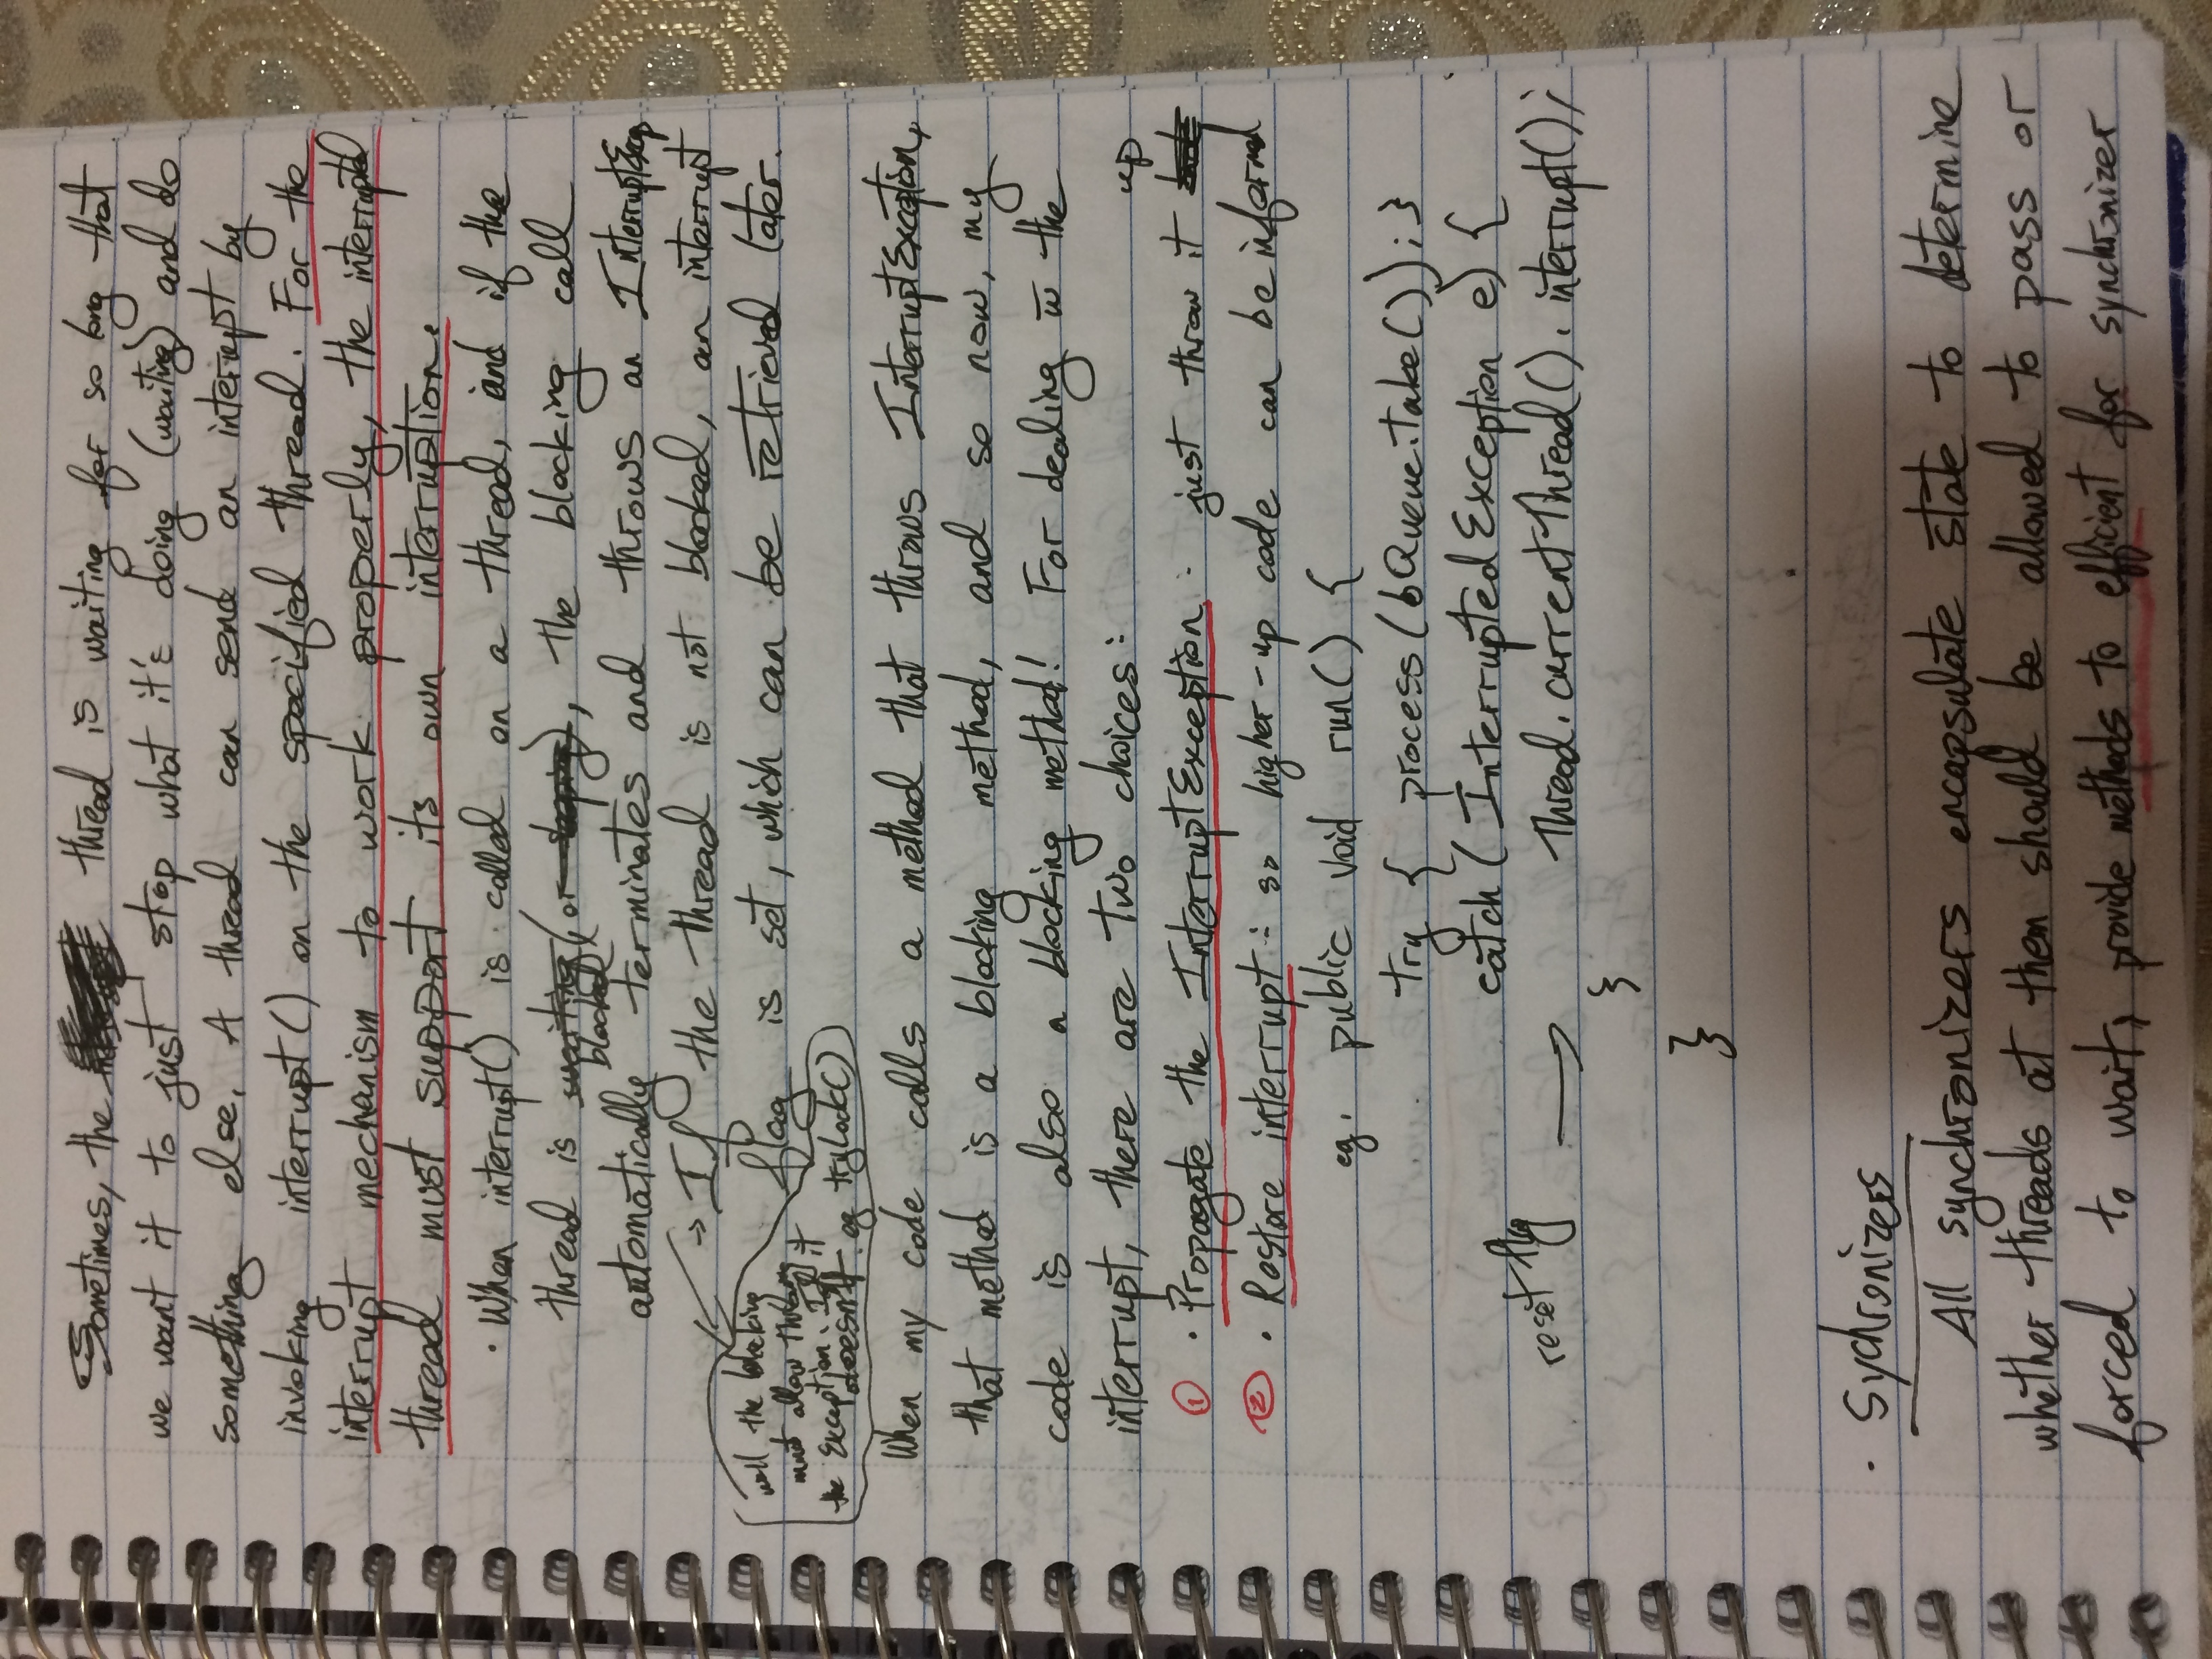 Sometimes, the thread is waiting for so long that
we want it to just stop what it's doing (waiting) and do
something else. A thread can send an interupt by
invoking interrupt() on the specified thread. For the
interrupt mechanism to work properly, the interrupted
thread must support its own interruption.
· When interrupt() is called on a thread, and if the
thread is waiting (or sleeping), the blocking call
blocked
automatically terminates and throws an InterruptExcp
→ If the thread is not blocked, an interrupt
flag is set, which can be retrieved later.
well the blocking
must allow throwing
the Exception. If it
doesn't. eg tryLock()
When my code calls a method that throws InterruptException,
that method is a blocking method, and so now, my
code is also a blocking method! For dealing w̄ the
interrupt, there are two choices:
① · Propagate the InterruptException : just throw it up
② · Restore interrupt : so higher-up code can be informed
eg. public void run() {
try { process(bQueue.take()); }
catch (InterruptedException e) {
reset flag → Thread.currentThread().interrupt();
}
}
· Sychronizers
All synchronizers encapsulate state to determine
whether threads at them should be allowed to pass or
forced to wait, provide methods to efficient for synchronizer